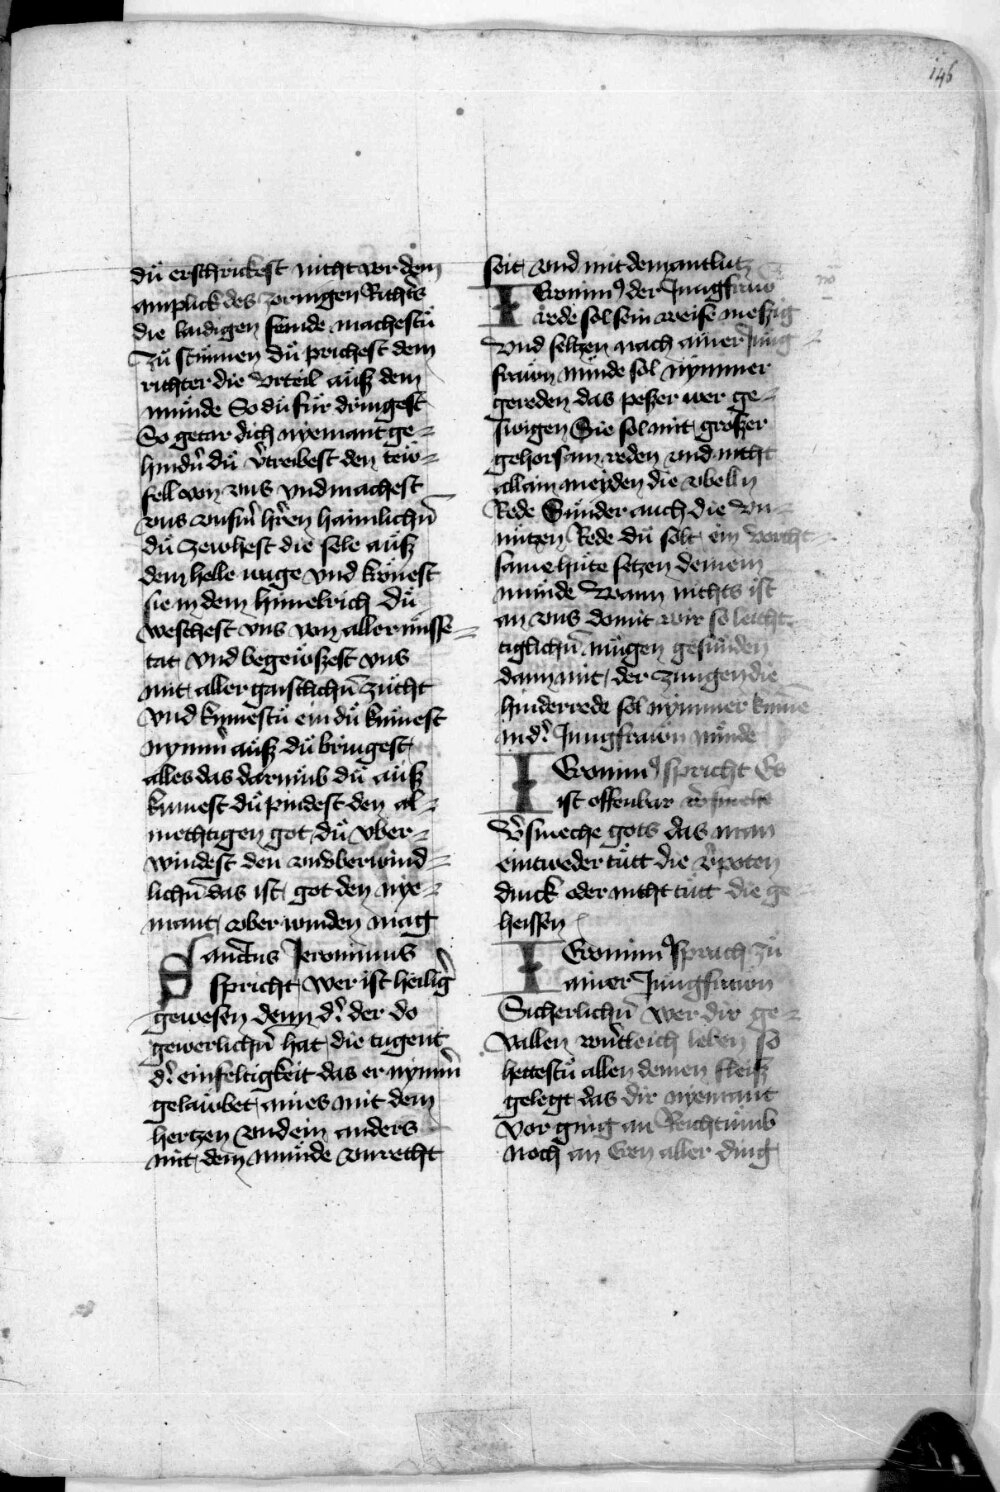 146
dü erschrickest nicht vor dem
anplick des zornigen Richters
die laidigen feinde machestü
Zü stümmen dü prichest dem
richter die Vrteil aüß dem
münde So dü für dringest
So getar dich nyemant ge=
hindn̄ dü v̓treibest den teüf=
fell von vns vnd machest
vns vnsm̄ hr̄en haimlichn̄
dü zewhest die sele aüß
dem helle und kronest
sie in dem himelrich Dü
weschest vns von aller misse=
tat Vnd begewßest vns
mit aller gaistlichn̄ zücht
Vnd kümestü ein dü kümest
nymm̄ aüß dü bringest
alles das darümb dü aüß
kümest dü pindest den al=
mechtigen got dü vber=
windest den vnvberwind=
lichn̄ das ist got den nye=
mant vber winden mag
Sanctus Jeronimus
spricht wer ist heilig̓
gewesen denn d̓ der do
gewerlichn̄ hat die tugent
d̓ einfeltigkeit das er nymm̄
gelaübet aines mit dem
hertzen Vnd ein anders
mit dem münde vnrecht
seit vnd mit dem antlutz
Ieronim⁹ der Jungfraw
rede sol sein weise meßig
Vnd seltzen nach ainer Jung
fraün münde sol nymmer
gereden das peßer wer ge=
swigen Sie sol mit großer
gehorsam reden vnd nicht
allain meyden die vbelln
Rede Sünder auch die vn=
nützen Rede dü solt ein vorcht=
same hüte setzen deinem
münde Wann nichts ist
an vns domit wir so leicht
tiglichn̄ mügen gesünden
dann mit der zungen die
hinderrede sol nymmer kume
in d̓ Jungfraün münde
Ieronim⁹ spricht Es
ist offenbar
V̓smeche gots das man
eintweder tütt die v̓poten
dinck oder nicht tütt die ge=
heissen
Ieronim⁹ sprach zü
ainer Jüngfraün
Sicherlichn̄ wer dir ge=
Vallen leben so
hettestü allen deinen fleiß
gelegt das dir nyemant
vor ging an Reichtümb
noch an Eren aller ding